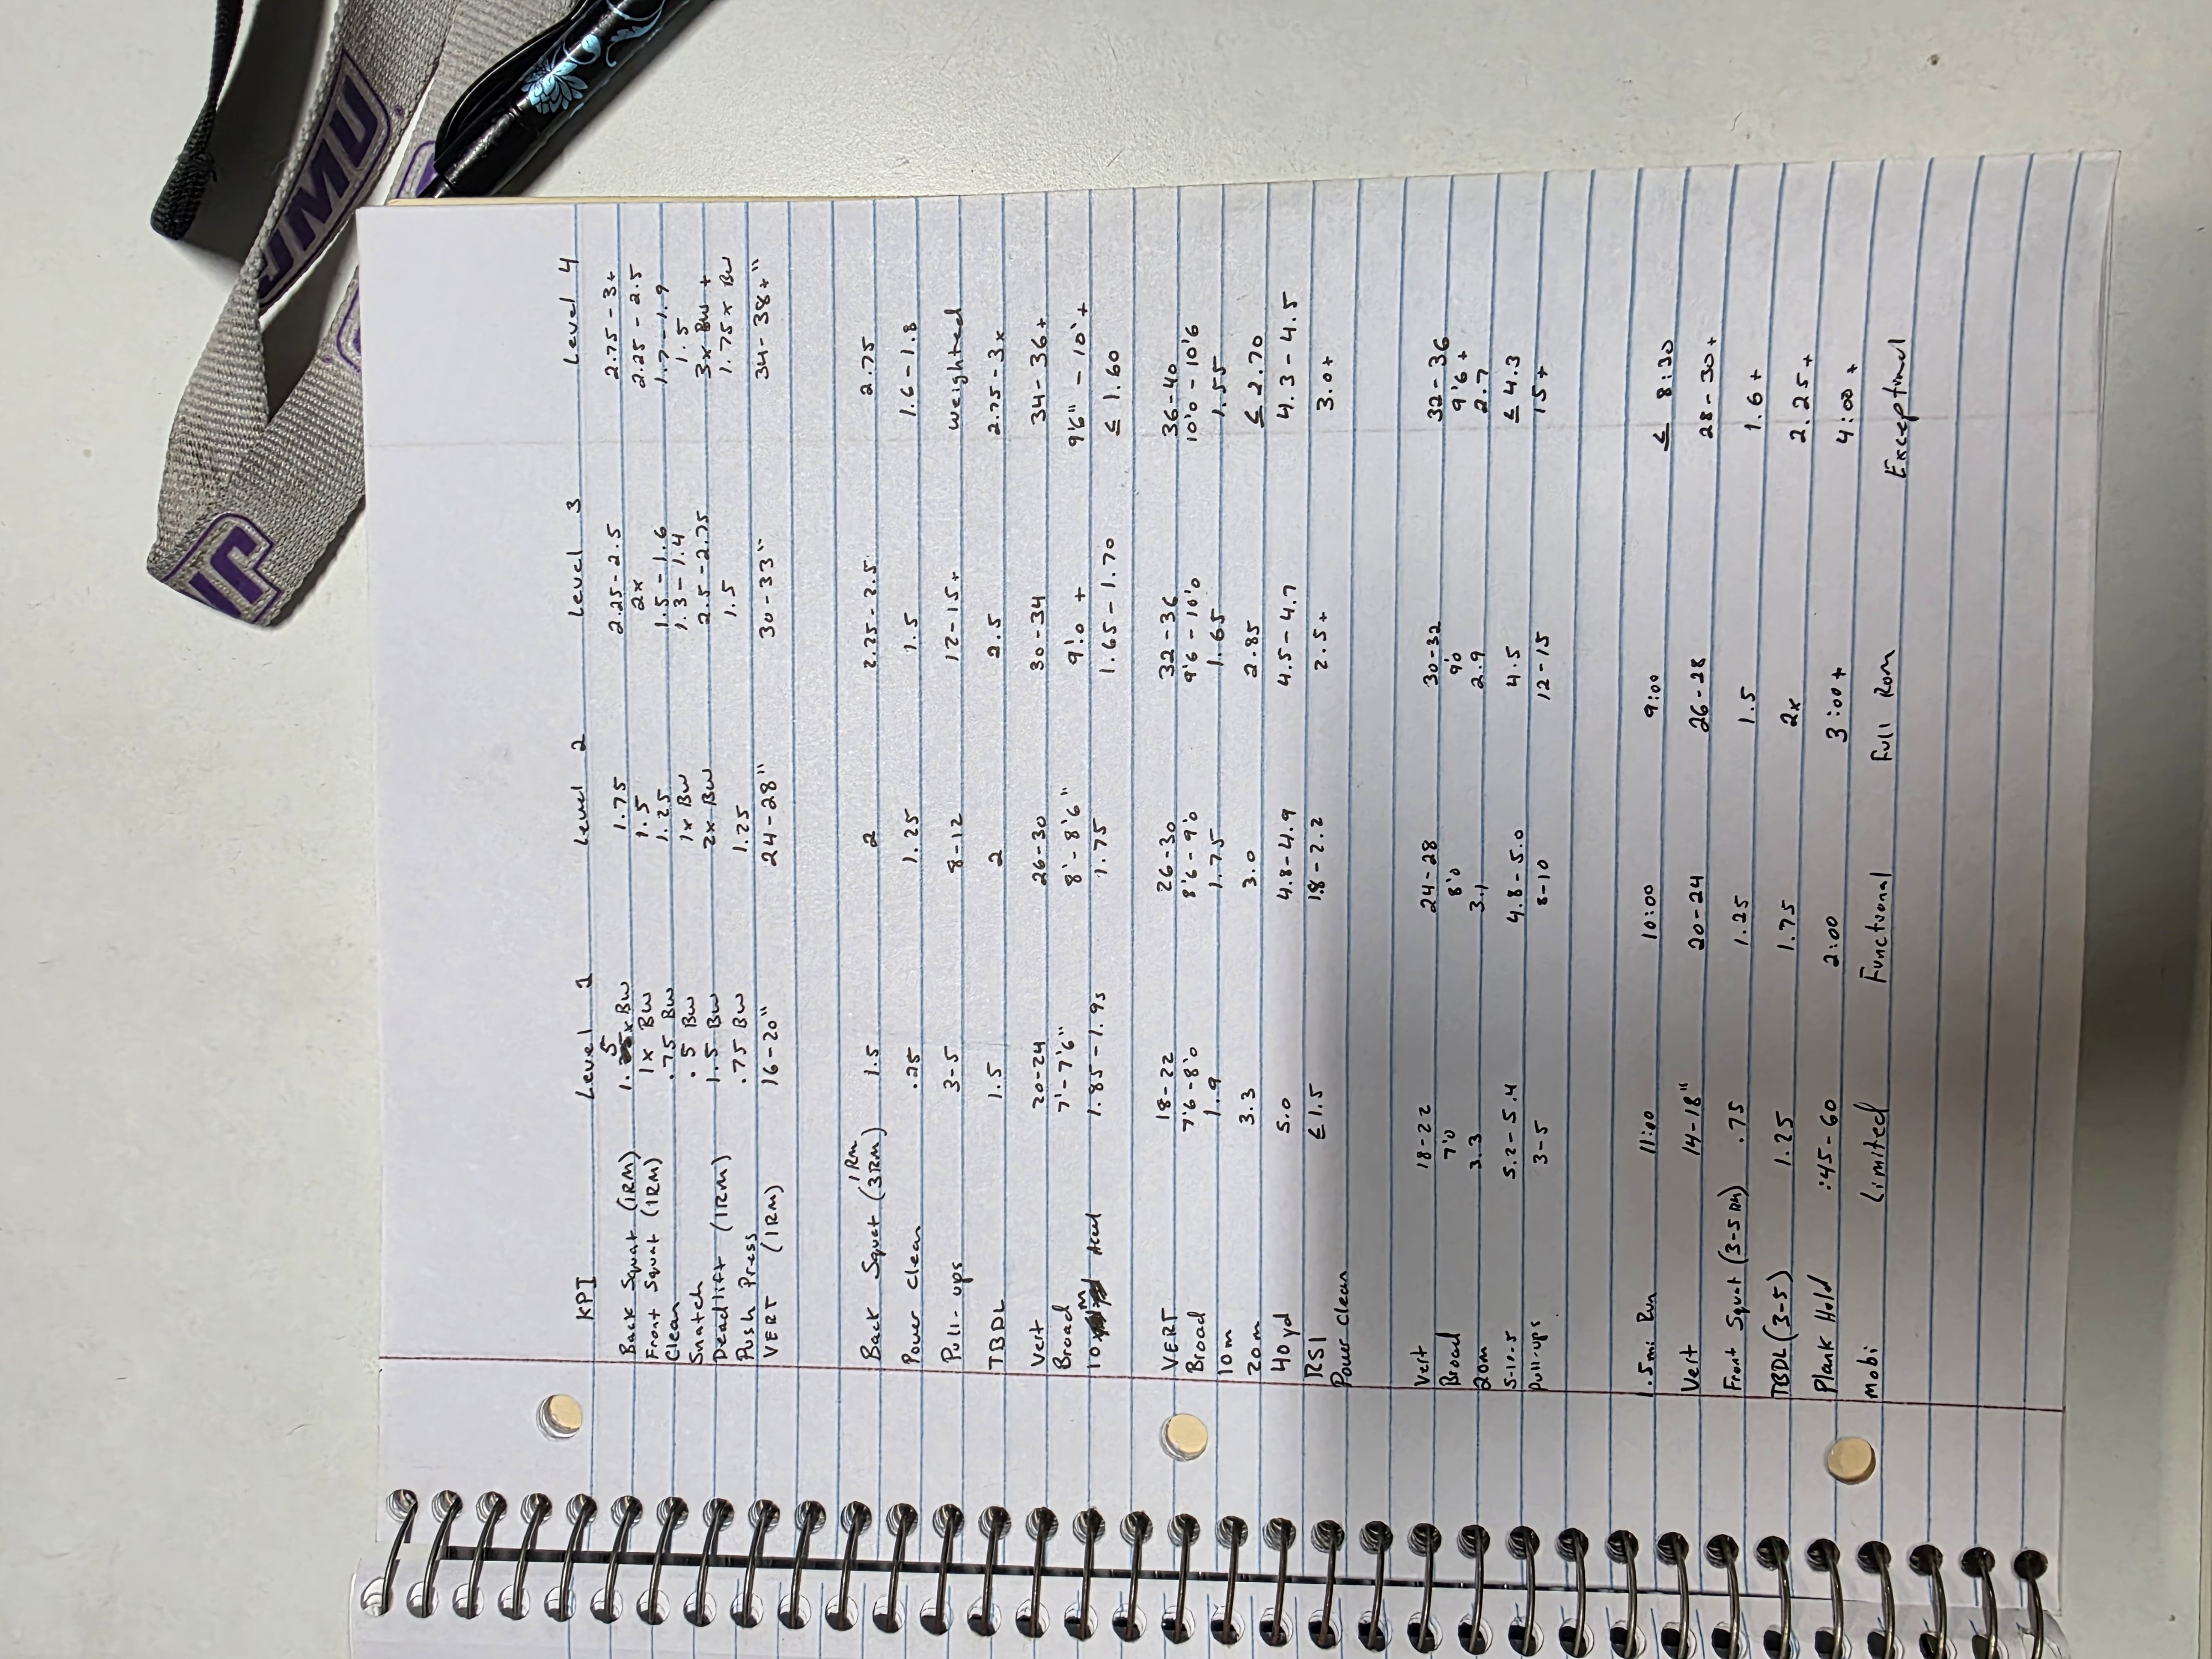 JMU
JMU
KPI Level 1 Level 2 Level 3 Level 4
Back Squat (1RM) 1.5x BW 1.75 2.25-2.5 2.75-3+
Front Squat (1RM) 1x BW 1.5 2x 2.25-2.5
Clean .75 BW 1.25 1.5-1.6 1.7-1.9
Snatch .5 BW 1x BW 1.3-1.4 1.5
Deadlift (1RM) 1.5 BW 2x BW 2.5-2.75 3x BW +
Push Press .75 BW 1.25 1.5 1.75x BW
VERT (1RM) 16-20" 24-28" 30-33" 34-38+"
1RM
Back Squat (3RM) 1.5 2 2.25-2.5 2.75
Power Clean .75 1.25 1.5 1.6-1.8
Pull-ups 3-5 8-12 12-15+ weighted
TBDL 1.5 2 2.5 2.75-3x
Vert 20-24 26-30 30-34 34-36+
Broad 7'-7'6" 8'-8'6" 9'0 + 9'6"-10'+
10 m Accel 1.85-1.9s 1.75 1.65-1.70 ≤ 1.60
VERT 18-22 26-30 32-36 36-40
Broad 7'6-8'0 8'6-9'0 9'6-10'0 10'0-10'6
10m 1.9 1.75 1.65 1.55
20m 3.3 3.0 2.85 ≤ 2.70
40yd 5.0 4.8-4.9 4.5-4.7 4.3-4.5
RSI ≤1.5 1.8-2.2 2.5+ 3.0+
Power Clean
Vert 18-22 24-28 30-32 32-36
Broad 7'0 8'0 9'0 9'6+
20m 3.3 3.1 2.9 2.7
5-10-5 5.2-5.4 4.8-5.0 4.5 ≤ 4.3
Pull-ups 3-5 8-10 12-15 15+
1.5mi Run 11:00 10:00 9:00 ≤ 8:30
Vert 14-18" 20-24 26-28 28-30+
Front Squat (3-5 RM) .75 1.25 1.5 1.6+
TBDL (3-5) 1.25 1.75 2x 2.25+
Plank Hold :45-60 2:00 3:00+ 4:00+
Mobi Limited Functional Full Rom Exceptional